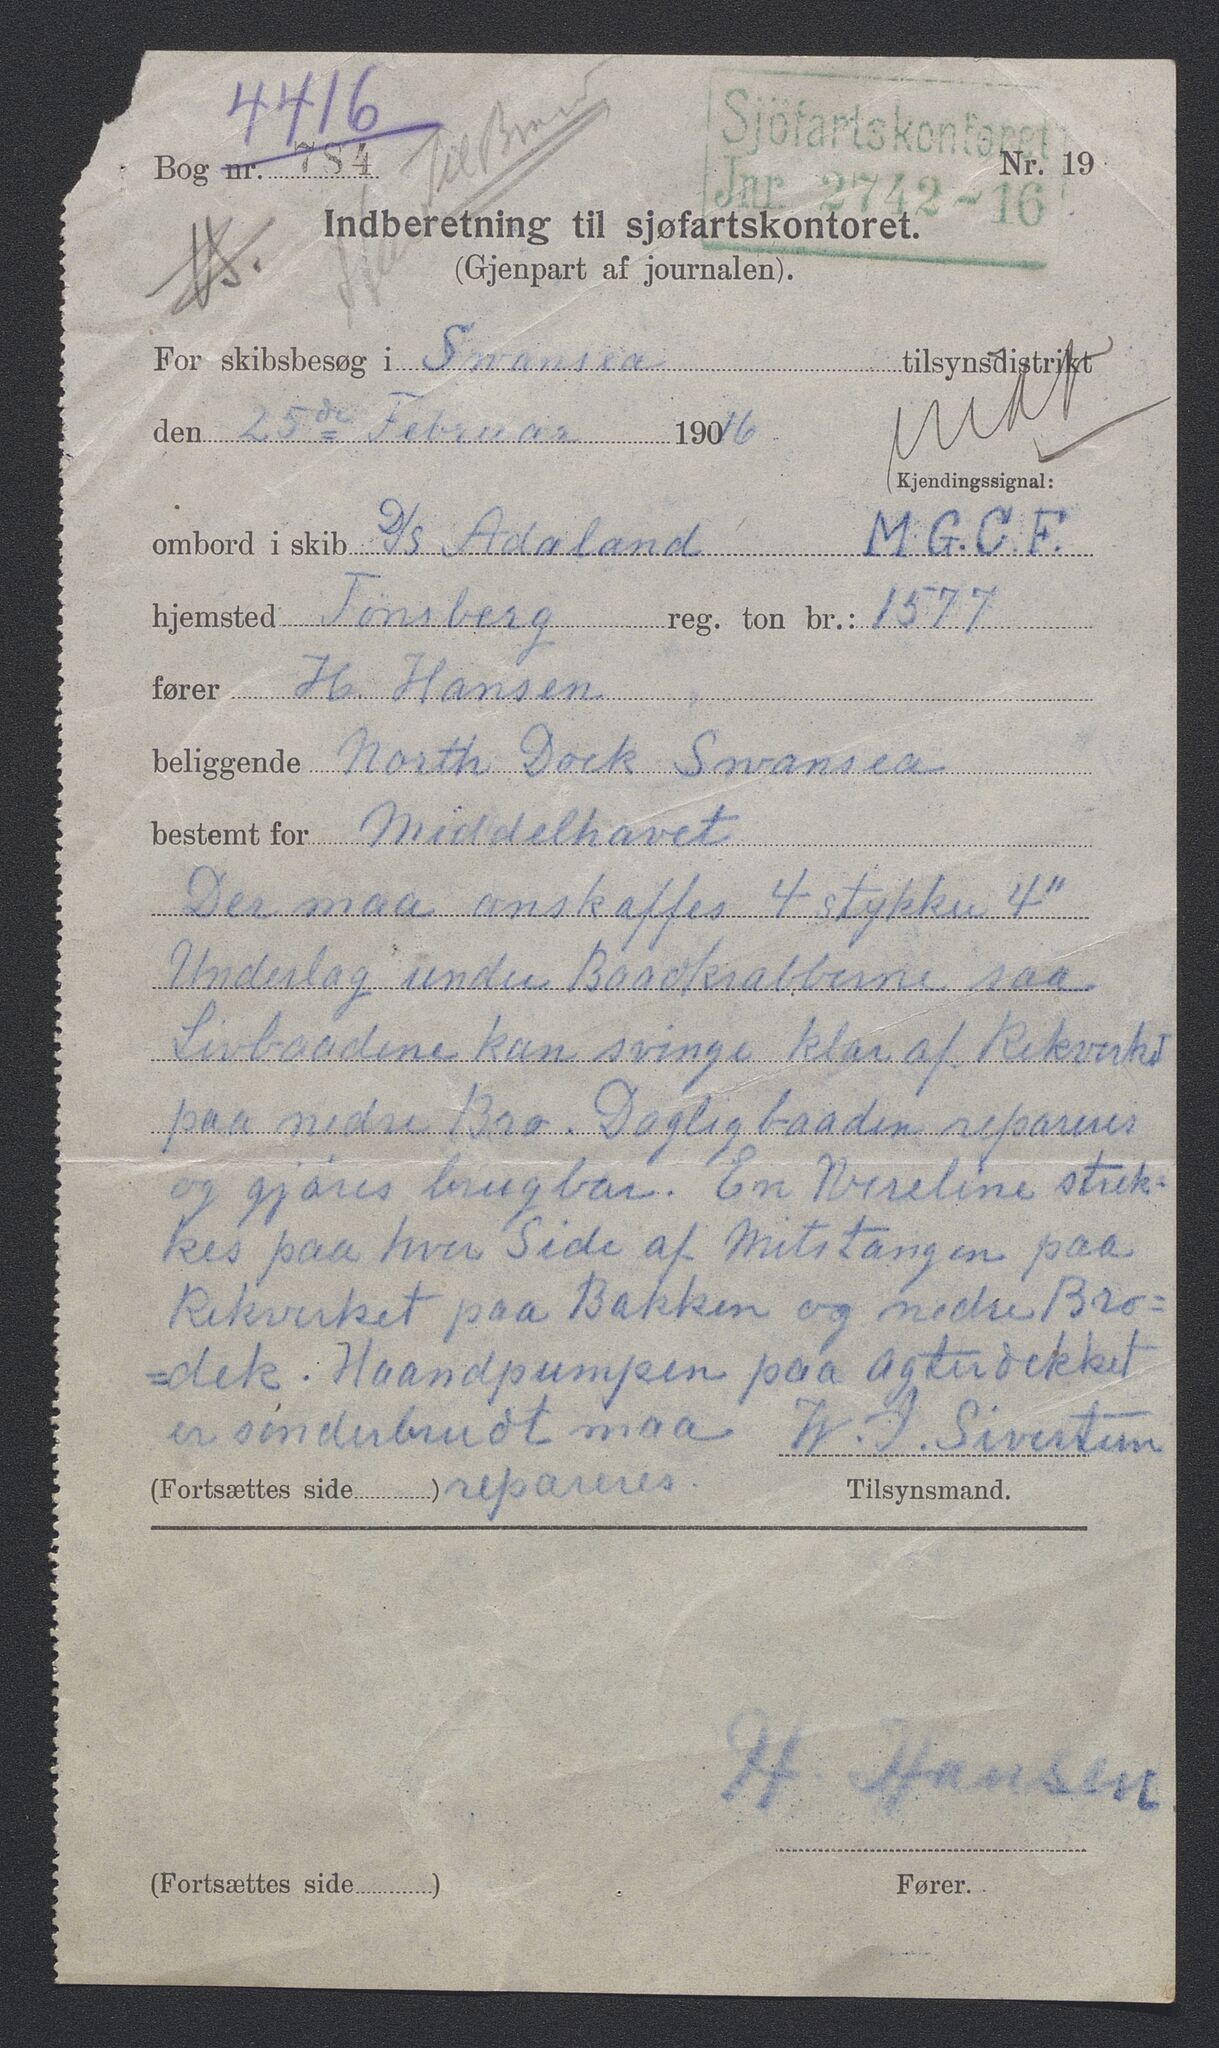 4416
Sjöfartskontoret
Jnr. 2742-16
Bog nr. 784
Nr. 19
Indberetning til sjøfartskontoret.
(Gjenpart af journalen).
For skibsbesøg i Swansea tilsynsdistrikt
den 25de Februar 190 16
Kjendingssignal:
ombord i skib D/S Adaland M.G.C.F.
hjemsted Tönsberg reg. ton br.: 1577
fører H. Hansen
beliggende North Dock Swansea
bestemt for Middelhavet
Der maa anskaffes 4 stykker 4"
Underlag under Baadkrabberne saa
Livbaadene kan svinge klar af Rekverket
paa nedre Bro. Dagligbaaden repareres
og gjøres brugbar. En Wireline strek-
kes paa hver Side af Mitstangen paa
Rekverket paa Bakken og nedre Bro=
=dek. Haandpumpen paa Agterdekket
er sönderbrudt maa W. J. Sivertsen
(Fortsættes side ) repareres. Tilsynsmand.
H. Hansen
(Fortsættes side ) Fører.